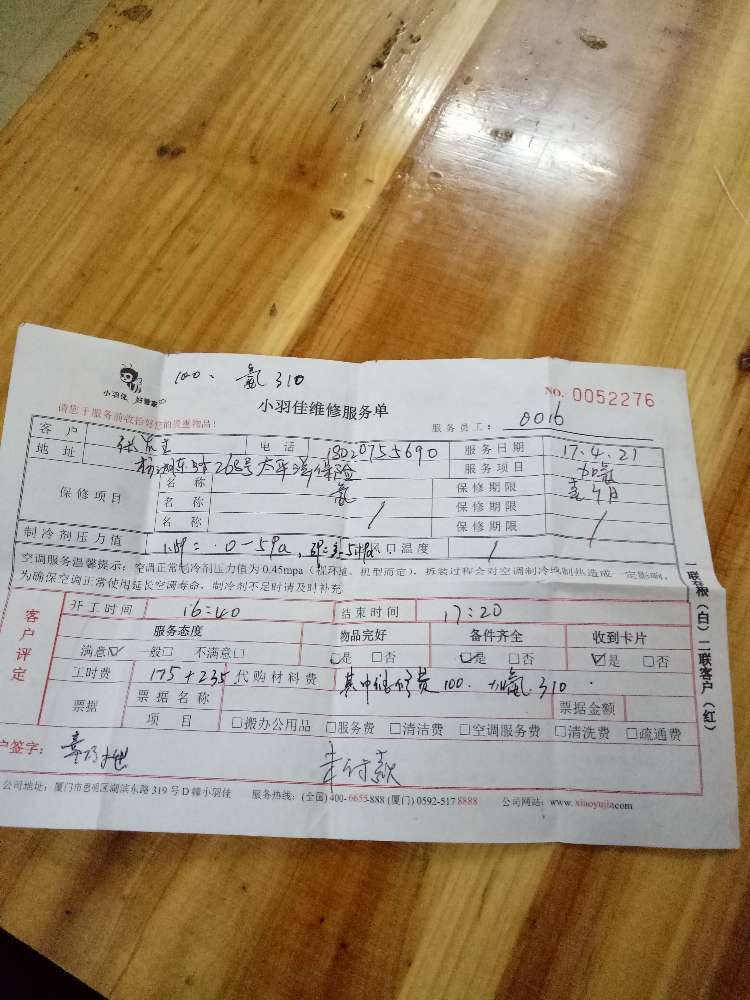 100. 氟 310
小羽佳 好管家
小羽佳维修服务单
No. 0052276
请您于服务前收拾好您的贵重物品!
服务员工: 0016
客户 张 电话 18020755690 服务日期 17.4.21
地址 268号太平洋保险 服务项目 加氟
保修项目 名称 氟 保修期限 壹个月
名称 / 保修期限 /
名称 保修期限
制冷剂压力值 风口温度 /
空调服务温馨提示: 空调正常制冷剂压力值为0.45mpa(视环境、机型而定), 拆装过程会对空调制冷或制热造成一定影响,
为确保空调正常使用延长空调寿命, 制冷剂不足时请及时补充
一联存根(白)二联客户(红)
客户评定
开工时间 16:40 结束时间 17:20
服务态度 物品完好 备件齐全 收到卡片
满意☑ 一般□ 不满意□ ☑是 □否 ☑是 □否 ☑是 □否
工时费 175+235 代购材料费 其中维修费 100. 加氟 310.
票据 票据名称 票据金额
项目 □搬办公用品 □服务费 □清洁费 □空调服务费 □清洗费 □疏通费
户签字: 未付款
公司地址: 厦门市思明区湖滨东路319号D幢小羽佳 服务热线: (全国)400-6655-888 (厦门)0592-5178888 公司网站: www.xiaoyujia.com